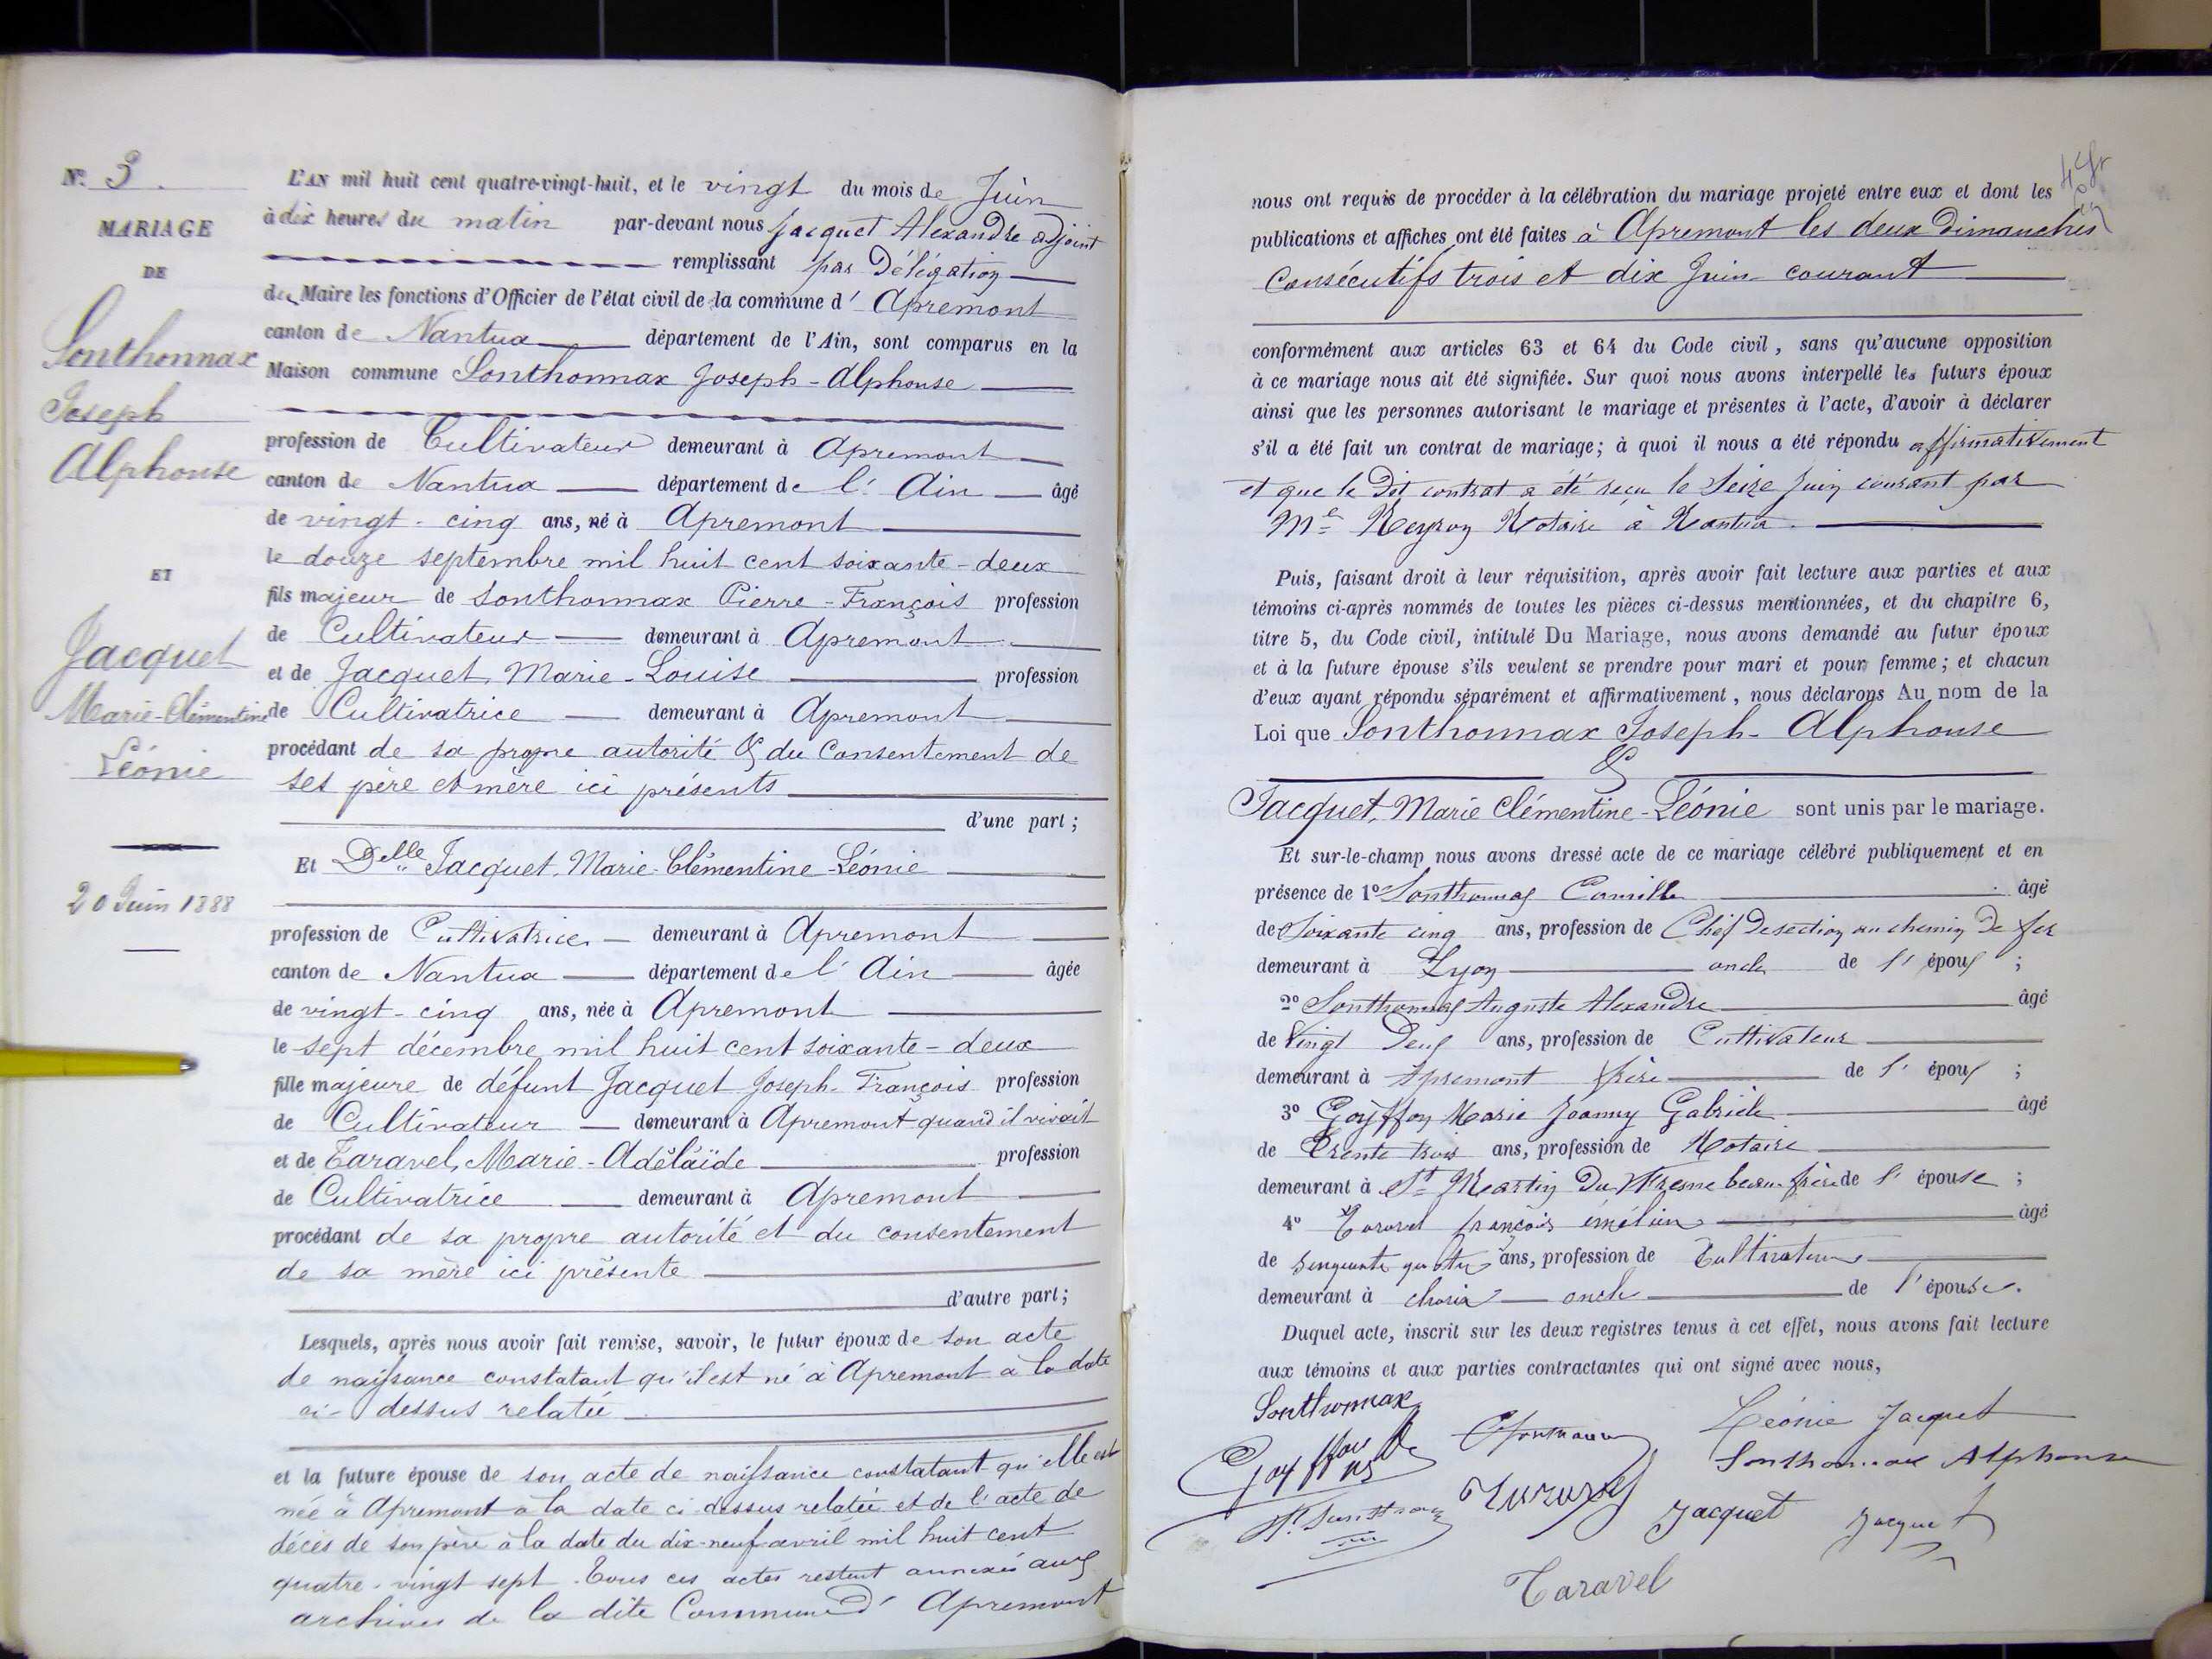 N° 3.
MARIAGE
DE
Sonthonnax
Joseph
Alphonse
ET
Jacquet
Marie-Clémentine
Léonie
20 Juin 1888
L'AN mil huit cent quatre-vingt-huit, et le vingt du mois de Juin
à dix heures du matin par-devant nous Jacquet Alexandre adjoint
remplissant par Délégation
du Maire les fonctions d'Officier de l'état civil de la commune d' Apremont
canton de Nantua département de l'Ain, sont comparus en la
Maison commune Sonthonnax Joseph-Alphonse
profession de Cultivateur demeurant à Apremont
canton de Nantua département de l' Ain âgé
de vingt-cinq ans, né à Apremont
le douze septembre mil huit cent soixante-deux
fils majeur de Sonthonnax Pierre-François profession
de Cultivateur demeurant à Apremont
et de Jacquet, Marie-Louise profession
de Cultivatrice demeurant à Apremont
procédant de sa propre autorité & du consentement de
ses père et mère ici présents
d'une part ;
Et Delle Jacquet, Marie-Clémentine-Léonie
profession de Cultivatrice demeurant à Apremont
canton de Nantua département de l' Ain âgée
de vingt-cinq ans, née à Apremont
le sept décembre mil huit cent soixante-deux
fille majeure de défunt Jacquet Joseph-François profession
de Cultivateur demeurant à Apremont quand il vivait
et de Taravel, Marie-Adélaïde profession
de Cultivatrice demeurant à Apremont
procédant de sa propre autorité et du consentement
de sa mère ici présente
d'autre part ;
Lesquels, après nous avoir fait remise, savoir, le futur époux de son acte
de naissance constatant qu'il est né à Apremont à la date
ci-dessus relatée
et la future épouse de son acte de naissance constatant qu'elle est
née à Apremont à la date ci-dessus relatée et de l'acte de
décès de son père à la date du dix-neuf avril mil huit cent
quatre-vingt sept. Tous ces actes restent annexés aux
archives de la dite Commune d' Apremont
nous ont requis de procéder à la célébration du mariage projeté entre eux et dont les
publications et affiches ont été faites à Apremont les deux Dimanches
consécutifs trois et dix Juin courant
conformément aux articles 63 et 64 du Code civil, sans qu'aucune opposition
à ce mariage nous ait été signifiée. Sur quoi nous avons interpellé les futurs époux
ainsi que les personnes autorisant le mariage et présentes à l'acte, d'avoir à déclarer
s'il a été fait un contrat de mariage ; à quoi il nous a été répondu affirmativement
et que le Dit contrat a été reçu le Seize Juin courant par
Me Notaire à Nantua.
Puis, faisant droit à leur réquisition, après avoir fait lecture aux parties et aux
témoins ci-après nommés de toutes les pièces ci-dessus mentionnées, et du chapitre 6,
titre 5, du Code civil, intitulé Du Mariage, nous avons demandé au futur époux
et à la future épouse s'ils veulent se prendre pour mari et pour femme ; et chacun
d'eux ayant répondu séparément et affirmativement, nous déclarons Au nom de la
Loi que Sonthonnax Joseph-Alphonse
&
Jacquet, Marie Clémentine-Léonie sont unis par le mariage.
Et sur-le-champ nous avons dressé acte de ce mariage célébré publiquement et en
présence de 1° Sonthonnax Camille âgé
de Soixante cinq ans, profession de Chef de section au chemin de fer
demeurant à Lyon oncle de l' époux ;
2° Sonthonnax Auguste Alexandre âgé
de Vingt Deux ans, profession de Cultivateur
demeurant à Apremont frère de l' époux ;
3° Goyffon Marie Joanny Gabriel âgé
de Trente trois ans, profession de Notaire
demeurant à St Martin Du Fresne beau-frère de l' épouse ;
4° Taravel françois émélien âgé
de cinquante quatre ans, profession de Cultivateur
demeurant à choix oncle de l' épouse.
Duquel acte, inscrit sur les deux registres tenus à cet effet, nous avons fait lecture
aux témoins et aux parties contractantes qui ont signé avec nous,
Sonthonnax
Léonie Jacquet
Goyffon
Sonthonnax Alphonse
Jacquet
Jacquet
Taravel